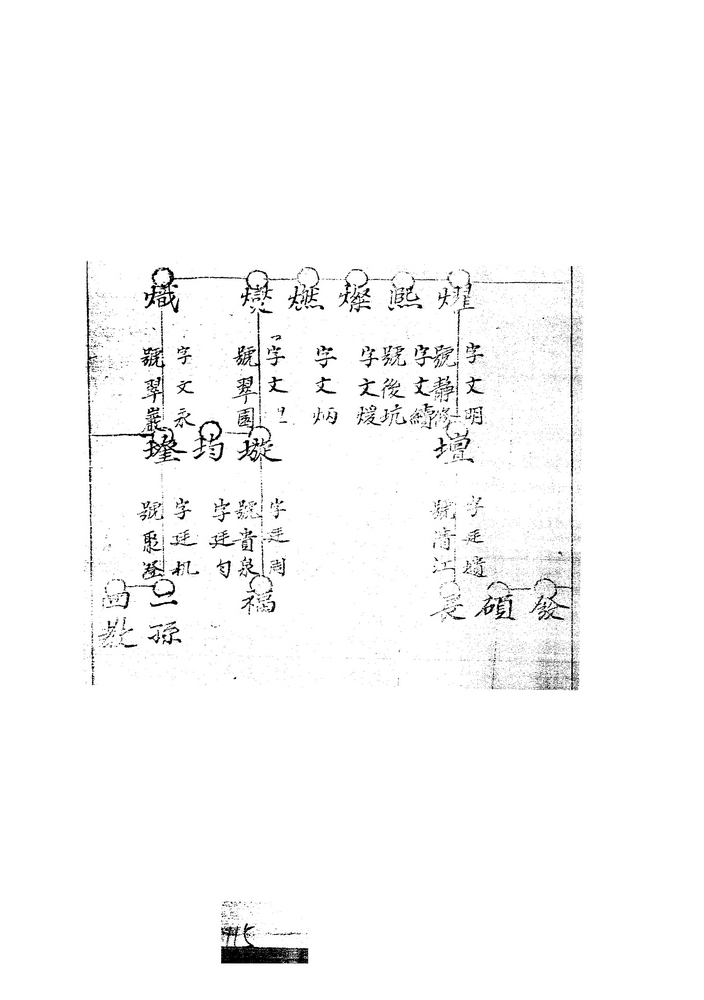 燿
熈
燦
燃
爕
熾
字文明
號靜修
字文續
號後坑
字文煖
字文炳
字文
號翠園
字文永
號翠巖
壇
墢
均
字廷墳
號清江
字廷周
號貴泉
字廷旬
字廷机
發
碩
長
福
二孫
四教
115